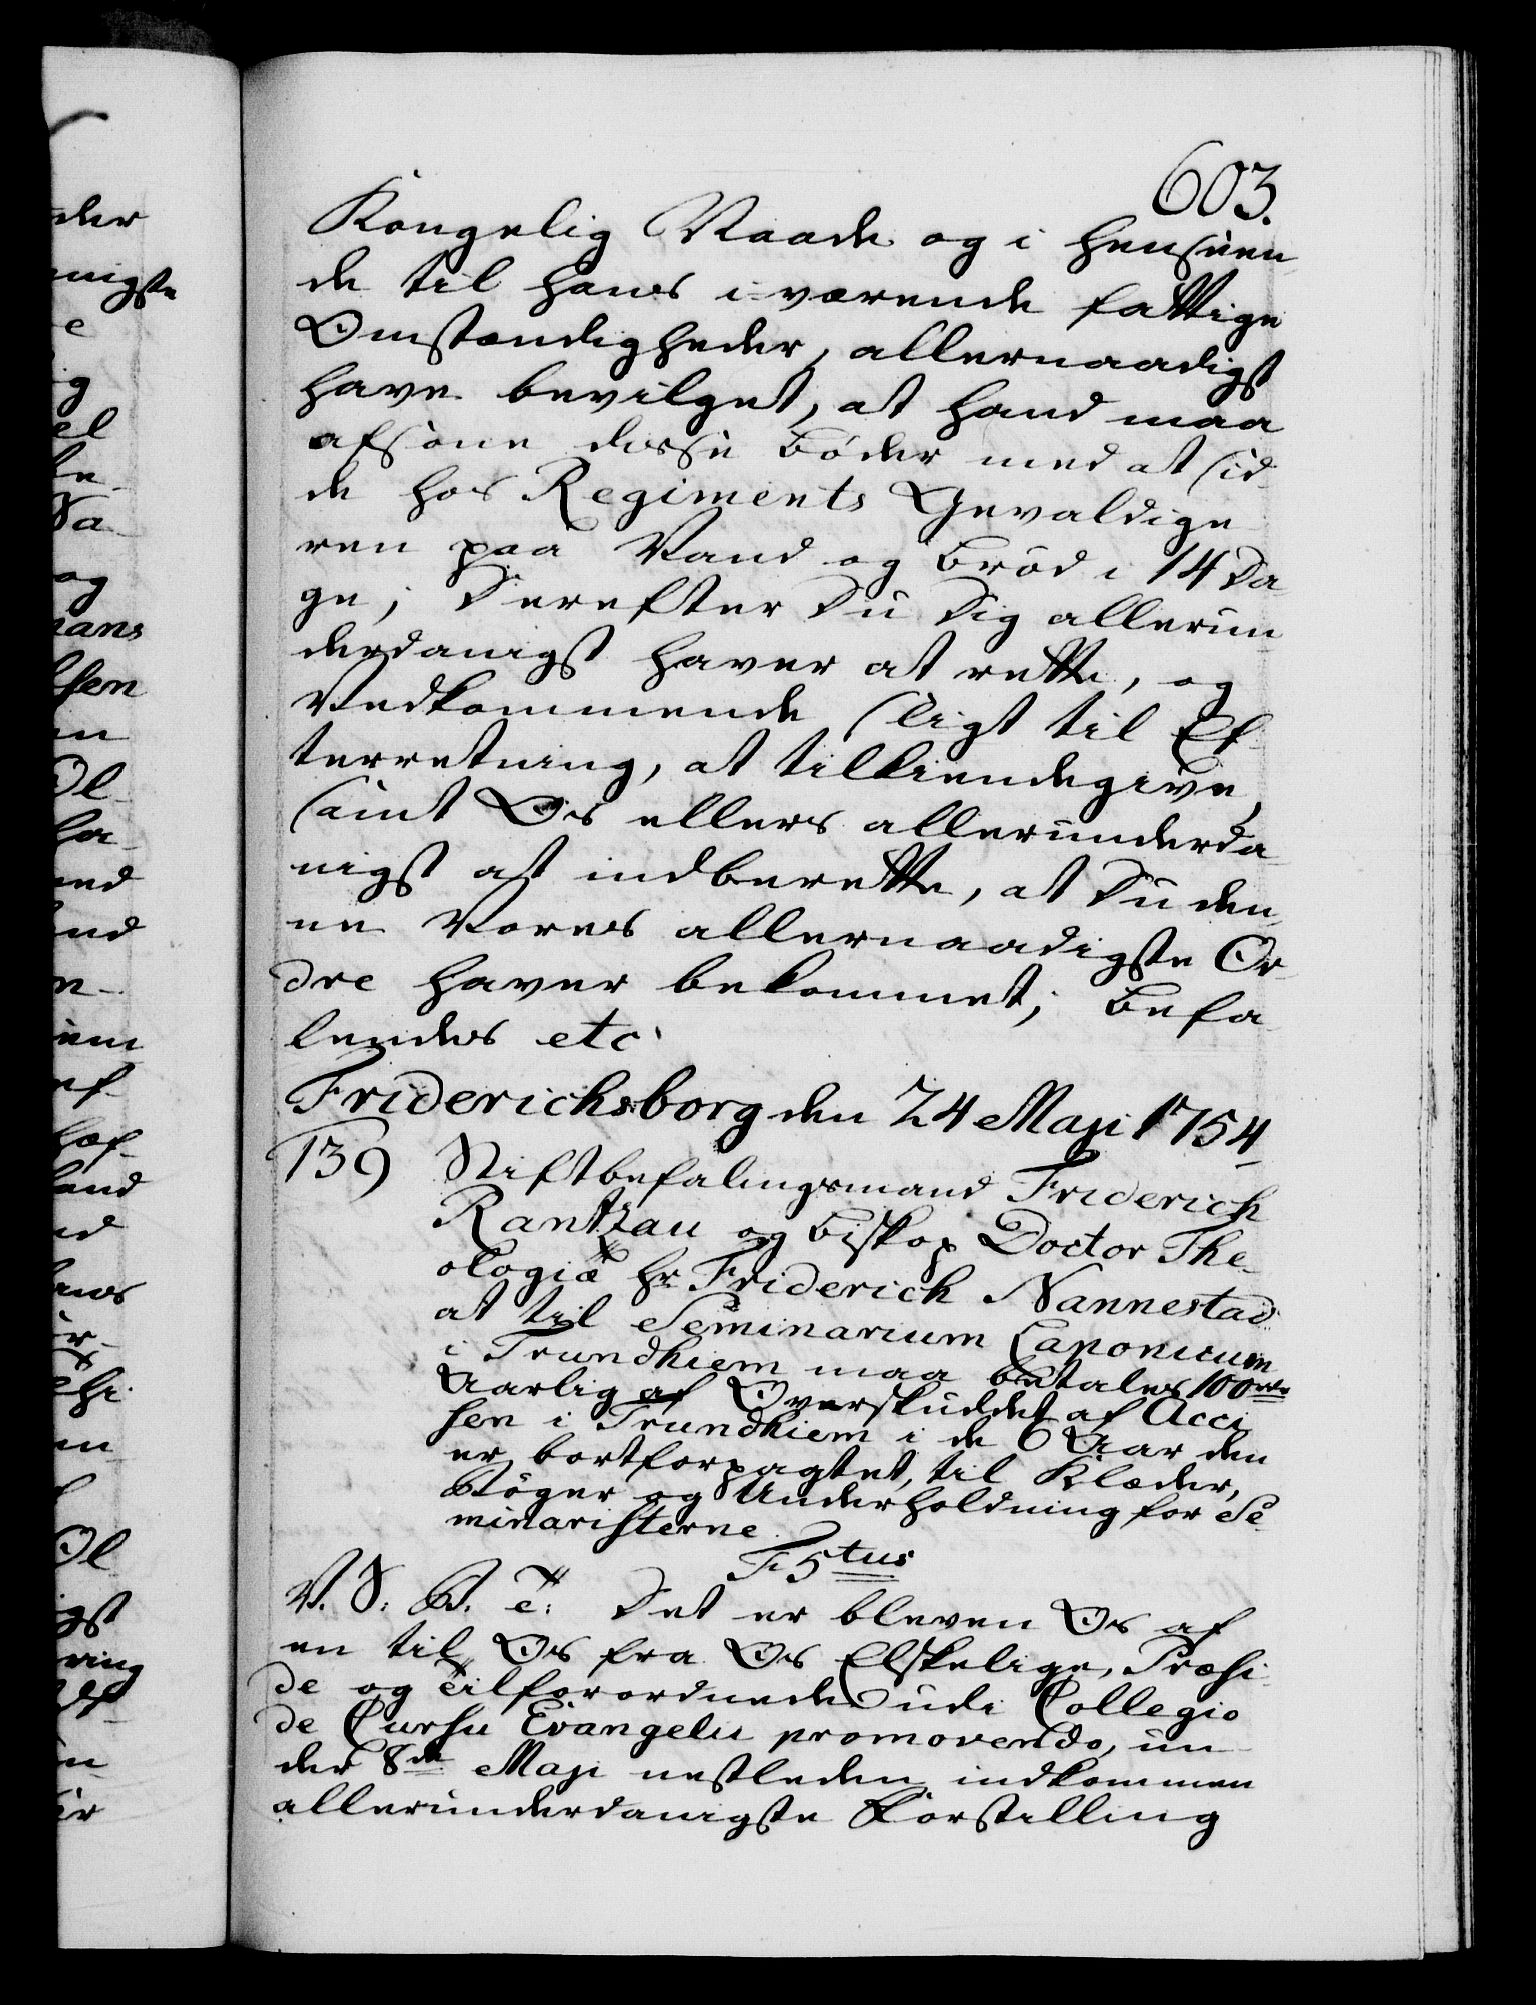 603.
Kongelig Naade og i henseen
de til hans iværende fattige
Omstændigheder, allernaadigst
have bevilget, at hand maa
afsone disse Bøder med at sid
de hos Regiments Gevaldige
ren paa Vand og Brød i 14 Da
ge; Derefter Du Dig allerun
derdanigst haver at rette, og
Vedkommende sligt til Ef-
terretning, at tilkiendegive,
samt Os ellers allerunderda
nigst at indberette, at Du den
ne Vores allernaadigste Or
dre haver bekommet; Befa
lendes etc.
Friderichsborg den 24 Maji 1754
139 Stiftbefalingsmand Friderich
Rantzau og Biskop Doctor The-
ologiæ hr. Friderich Nannestad
at til Seminarium Laponicum
i Trundhiem maa betales 100 rdr
Aarlig af Overskuddet af Acci
sen i Trundhiem i de 6 Aar den
er bortforpagtet, til Klæder,
Bøger og Underholdning for Se-
minaristerne.
F. 5tus
V. S: B. T. e: Det er bleven Os af
en til Os fra Os Elskelige, Præsi-
de og Tilforordnede udi Collegio
de Cursu Evangelii promovendo, un
der 8de Maji nestleden indkommen
allerunderdanigste Forstilling